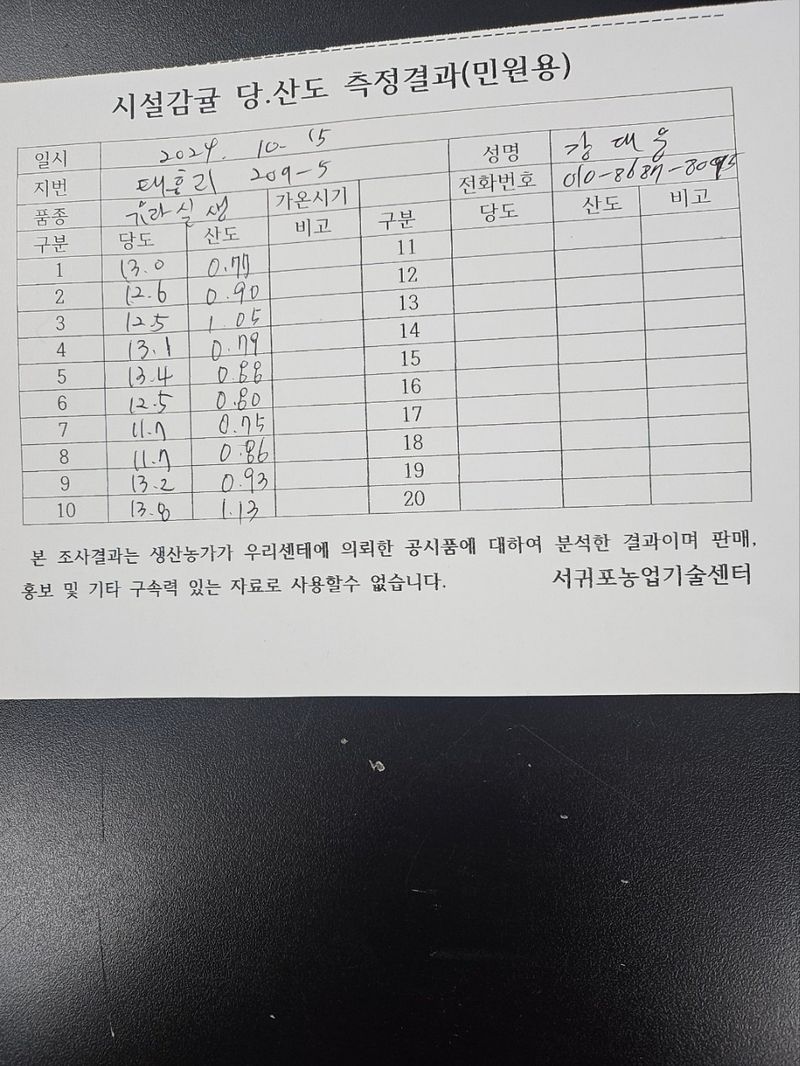 시설감귤 당.산도 측정결과(민원용)
일시 2024. 10. 15 성명 강대웅
지번 태흥리 209-5 전화번호
품종 유라실생 가온시기
구분 당도 산도 비고 구분 당도 산도 비고
1 13.0 0.77 11
2 12.6 0.90 12
3 12.5 1.05 13
4 13.1 0.79 14
5 13.4 0.88 15
6 12.5 0.80 16
7 11.7 0.75 17
8 11.7 0.86 18
9 13.2 0.93 19
10 13.8 1.13 20
본 조사결과는 생산농가가 우리센테에 의뢰한 공시품에 대하여 분석한 결과이며 판매,
홍보 및 기타 구속력 있는 자료로 사용할수 없습니다. 서귀포농업기술센터